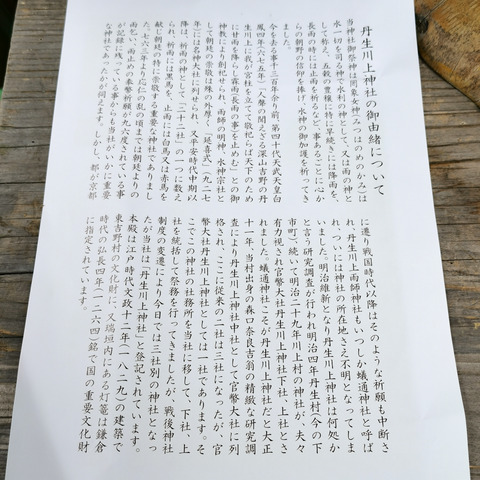 丹生川上神社の御由緒について
当神社御祭神は罔象女神（みつはのめのかみ）は
水一切を司る神で水利の神として、又は雨の神と
して称え、五穀の豊穣に特に旱続きには降雨を、
長雨の時には止雨を祈るなど、事あるごとに心か
らの朝野の信仰を捧げ、水神の御加護を祈ってき
ました。
今を去る事千三百年余り前、第四十代天武天皇白
鳳四年（六七五年）「人聲の聞えざる深山吉野の丹
生川上に我が宮柱を立てて敬祀らば天下のため
に甘雨を降らし霖雨（長雨の事）を止めむ」との御
神教により創祀せられ、雨師の明神、水神宗社と
して朝廷の崇敬は殊の外厚く、「延喜式」（九二七
年）には名神大社に列せられ、又平安時代中期以
降は、祈雨の神として「二十二社」の一つに数え
られ、祈雨には黒馬を、止雨には白馬又は赤馬を
献じ朝廷の特に崇敬する重要な神社でありまし
た。七六三年より応仁の乱の頃までは朝廷よりの
雨乞い、雨止めの奉幣祈願が九六度されている事
が記録に残っている事からも当社がいかに重要
な神社であったかが伺えます。しかし、都が京都
に遷り戦国時代以降はそのような祈願も中断さ
れ、丹生川上雨師神社もいつしか蟻通神社と呼ば
れ、ついには神社の所在地さえ不明となってしま
いました。明治維新となり丹生川上神社は何処か
と言う研究調査が行われ明治四年丹生村（今の下
市町）続いて明治二十九年川上村の神社が、夫々
有力視され官幣大社丹生川上神社下社、上社とさ
れました。蟻通神社こそが丹生川上神社だと大正
十一年、当村出身の森口奈良吉翁の精緻な研究調
査により丹生川上神社中社として官幣大社に列
格され、ここに従来の二社は三社になったが、官
幣大社丹生川上神社としては一社であります。そ
こでこの神社の社務所を当社に移して、下社、上
社を統括して祭務を行ってきましたが、戦後神社
制度の変遷により今日では三社別の神社となっ
たが当社は「丹生川上神社」と登記されています。
本殿は江戸時代文政十二年（一八二九）の建築で
東吉野村の文化財に、又瑞垣内にある灯篭は鎌倉
時代の弘長四年（一二六四）銘で国の重要文化財
に指定されています。